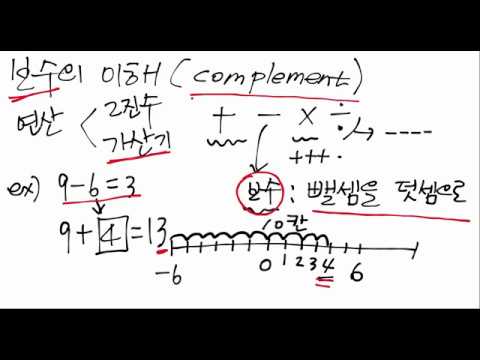 보수의 이해 (complement)
연산 < 2진수 가산기
+ - × ÷ → ----
+++.
보수 : 뺄셈을 덧셈으로
ex) 9-6=3
9+4=13
10칸
-6 0 1 2 3 4 6